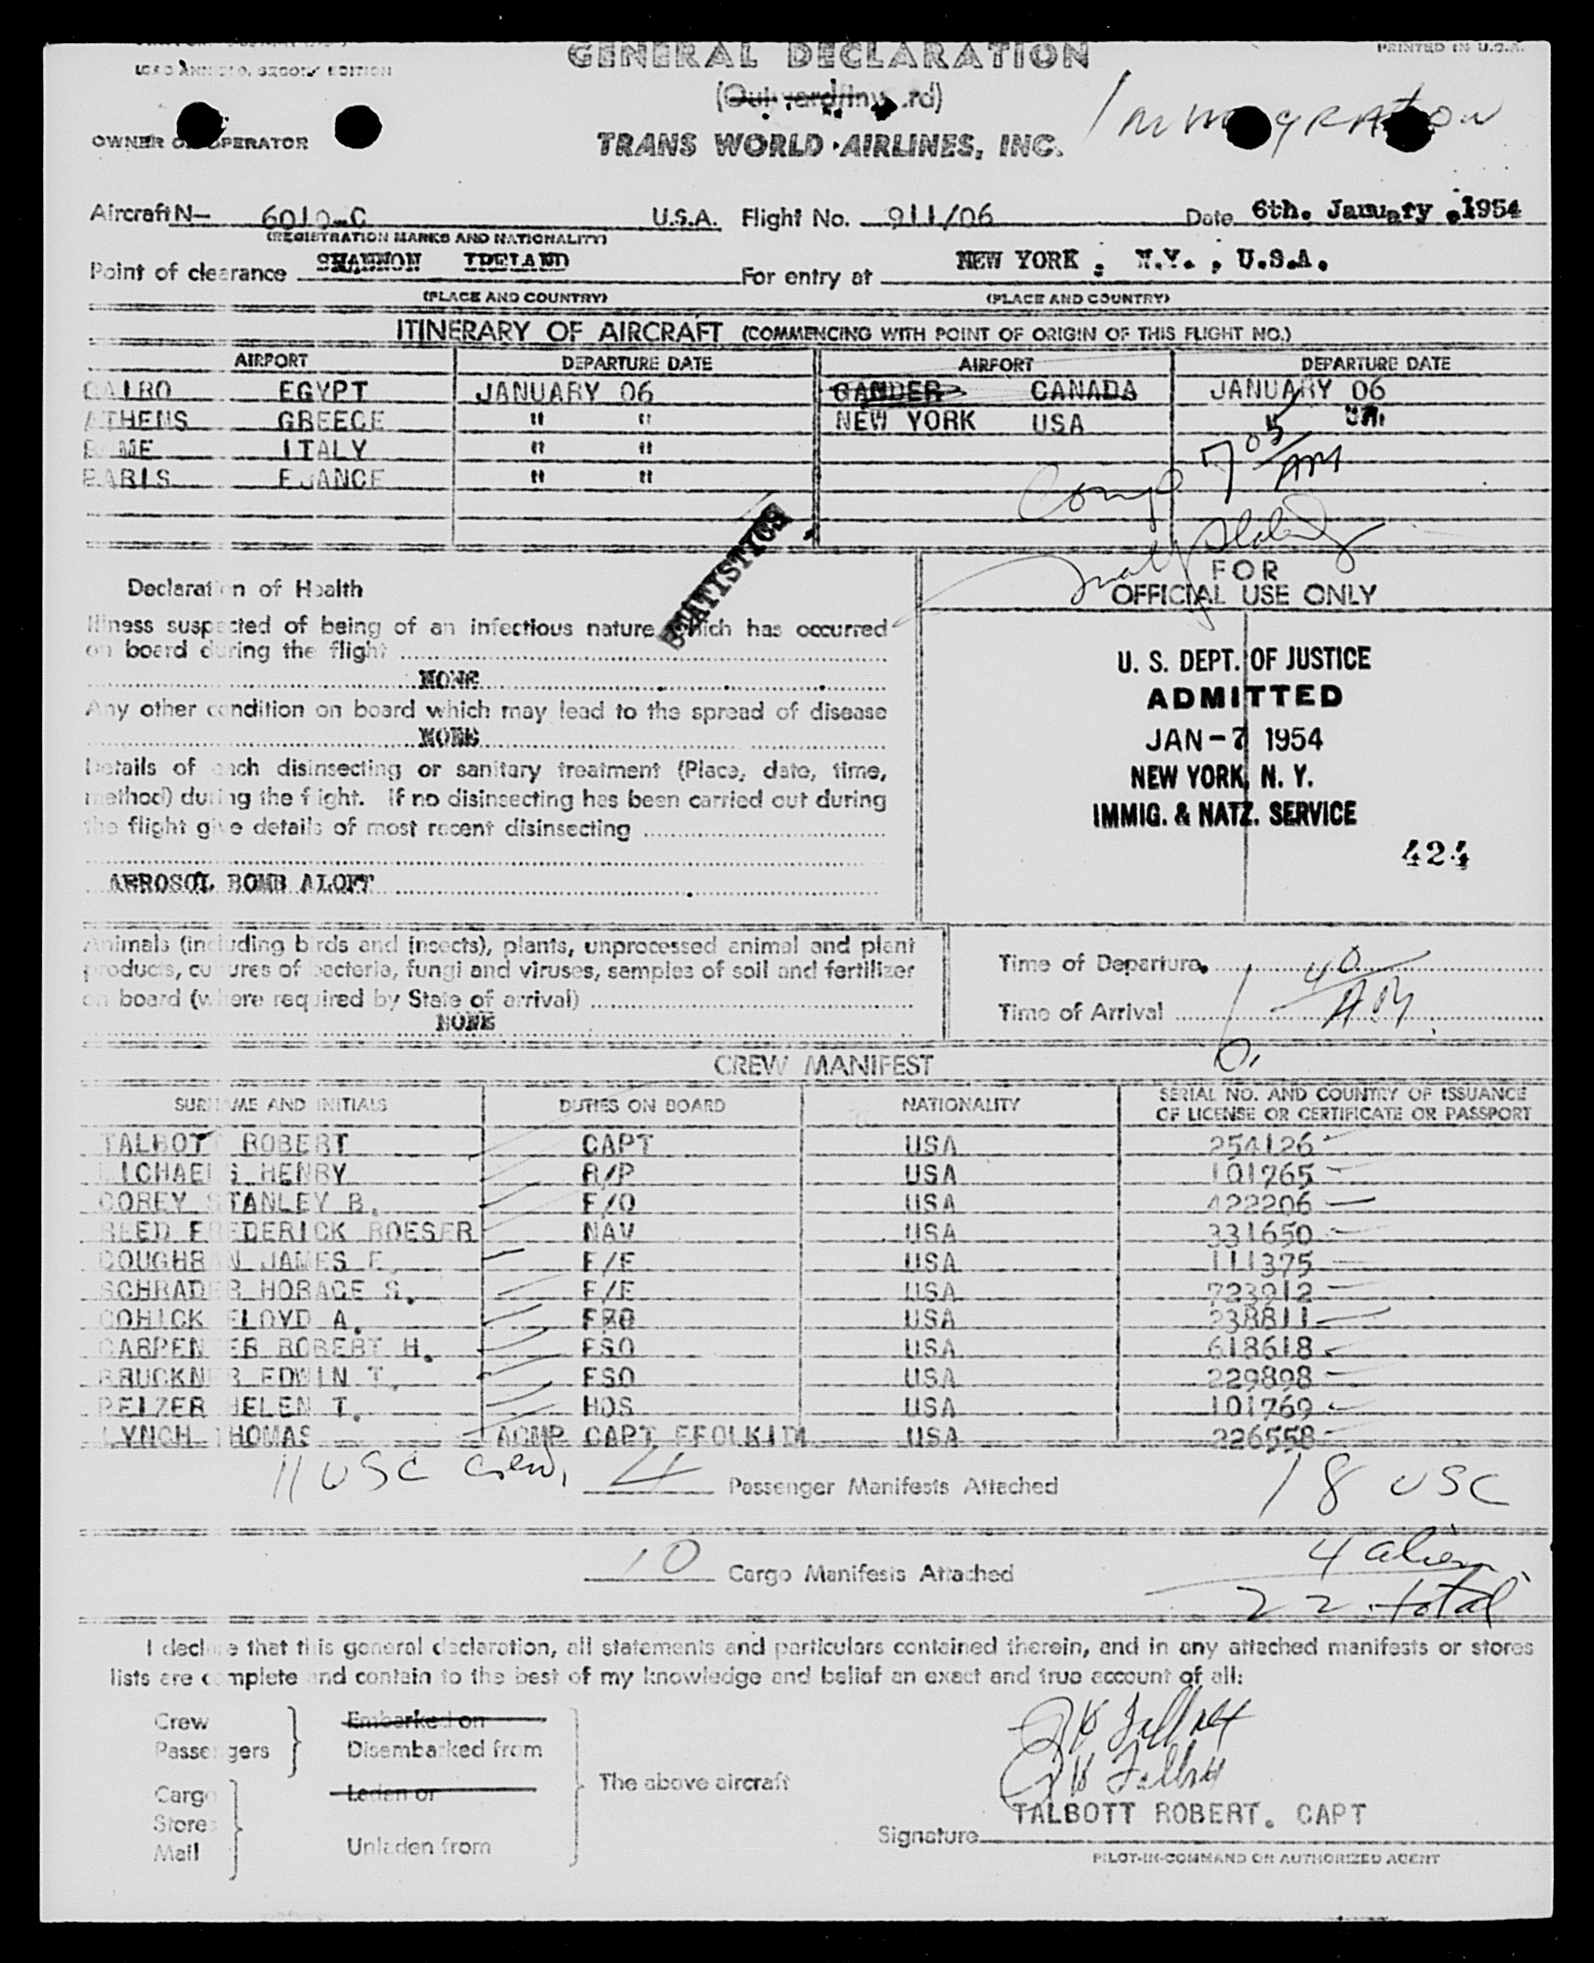 PRINTED IN U.S.A.
GENERAL DECLARATION
(Outward/Inward)
Immigration
OWNER OR OPERATOR
TRANS WORLD AIRLINES, INC.
Aircraft N- 6010-C U.S.A. Flight No. 911/06 Date 6th. January .1954
(REGISTRATION MARKS AND NATIONALITY)
Point of clearance SHANNON IRELAND For entry at NEW YORK , N.Y. , U.S.A.
(PLACE AND COUNTRY) (PLACE AND COUNTRY)
ITINERARY OF AIRCRAFT (COMMENCING WITH POINT OF ORIGIN OF THIS FLIGHT NO.)
AIRPORT DEPARTURE DATE AIRPORT DEPARTURE DATE
CAIRO EGYPT JANUARY 06 GANDER CANADA JANUARY 06
ATHENS GREECE " " NEW YORK USA "
ROME ITALY " "
PARIS FRANCE " "
7 05 AM
Comp
STATISTICS
Declaration of Health
FOR
OFFICIAL USE ONLY
Illness suspected of being of an infectious nature which has occurred
on board during the flight
NONE
Any other condition on board which may lead to the spread of disease
NONE
Details of each disinsecting or sanitary treatment (Place, date, time,
method) during the flight. If no disinsecting has been carried out during
the flight give details of most recent disinsecting
AEROSOL BOMB ALOFT
U. S. DEPT. OF JUSTICE
ADMITTED
JAN-7 1954
NEW YORK, N. Y.
IMMIG. & NATZ. SERVICE
424
Animals (including birds and insects), plants, unprocessed animal and plant
products, cultures of bacteria, fungi and viruses, samples of soil and fertilizer
on board (where required by State of arrival)
NONE
Time of Departure
Time of Arrival
40 A.M.
CREW MANIFEST
SURNAME AND INITIALS DUTIES ON BOARD NATIONALITY SERIAL NO. AND COUNTRY OF ISSUANCE
OF LICENSE OR CERTIFICATE OR PASSPORT
TALBOTT ROBERT CAPT USA 254126
MICHAELS HENRY R/P USA 101765
COREY STANLEY B. F/O USA 422206
REED FREDERICK ROESER NAV USA 331650
COUGHRAN JAMES F. F/E USA 111375
SCHRADER HORACE S. F/E USA 723912
COHICK FLOYD A. USA 238811
CARPENTER ROBERT H. FSO USA 618618
BRUCKNER EDWIN T. FSO USA 229898
PEIZER HELEN T. HOS USA 101769
LYNCH THOMAS ACMP CAPT USA 226558
11 USC crew, 4 Passenger Manifests Attached 18 USC
10 Cargo Manifests Attached 4 alien
22 total
I declare that this general declaration, all statements and particulars contained therein, and in any attached manifests or stores
lists are complete and contain to the best of my knowledge and belief an exact and true account of all:
Crew Embarked on
Passengers Disembarked from
The above aircraft
Cargo Laden on
Stores
Mail Unladen from
R Talbott
R Talbott
TALBOTT ROBERT. CAPT
Signature
PILOT-IN-COMMAND OR AUTHORIZED AGENT